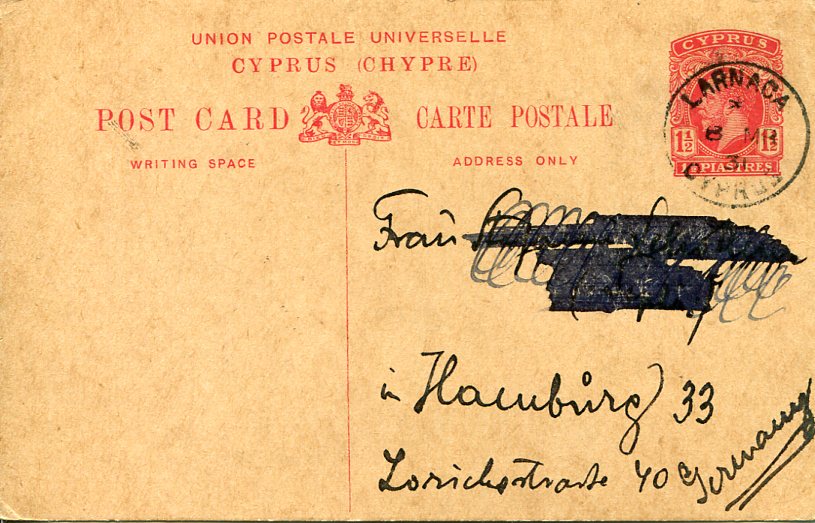 UNION POSTALE UNIVERSELLE
CYPRUS (CHYPRE)
POST CARD CARTE POSTALE
WRITING SPACE ADDRESS ONLY
CYPRUS
1½ 1½
PIASTRES
LARNACA
MR
31
CYPRUS
Frau
in Hamburg 33
Lorichsstrasse 40 Germany